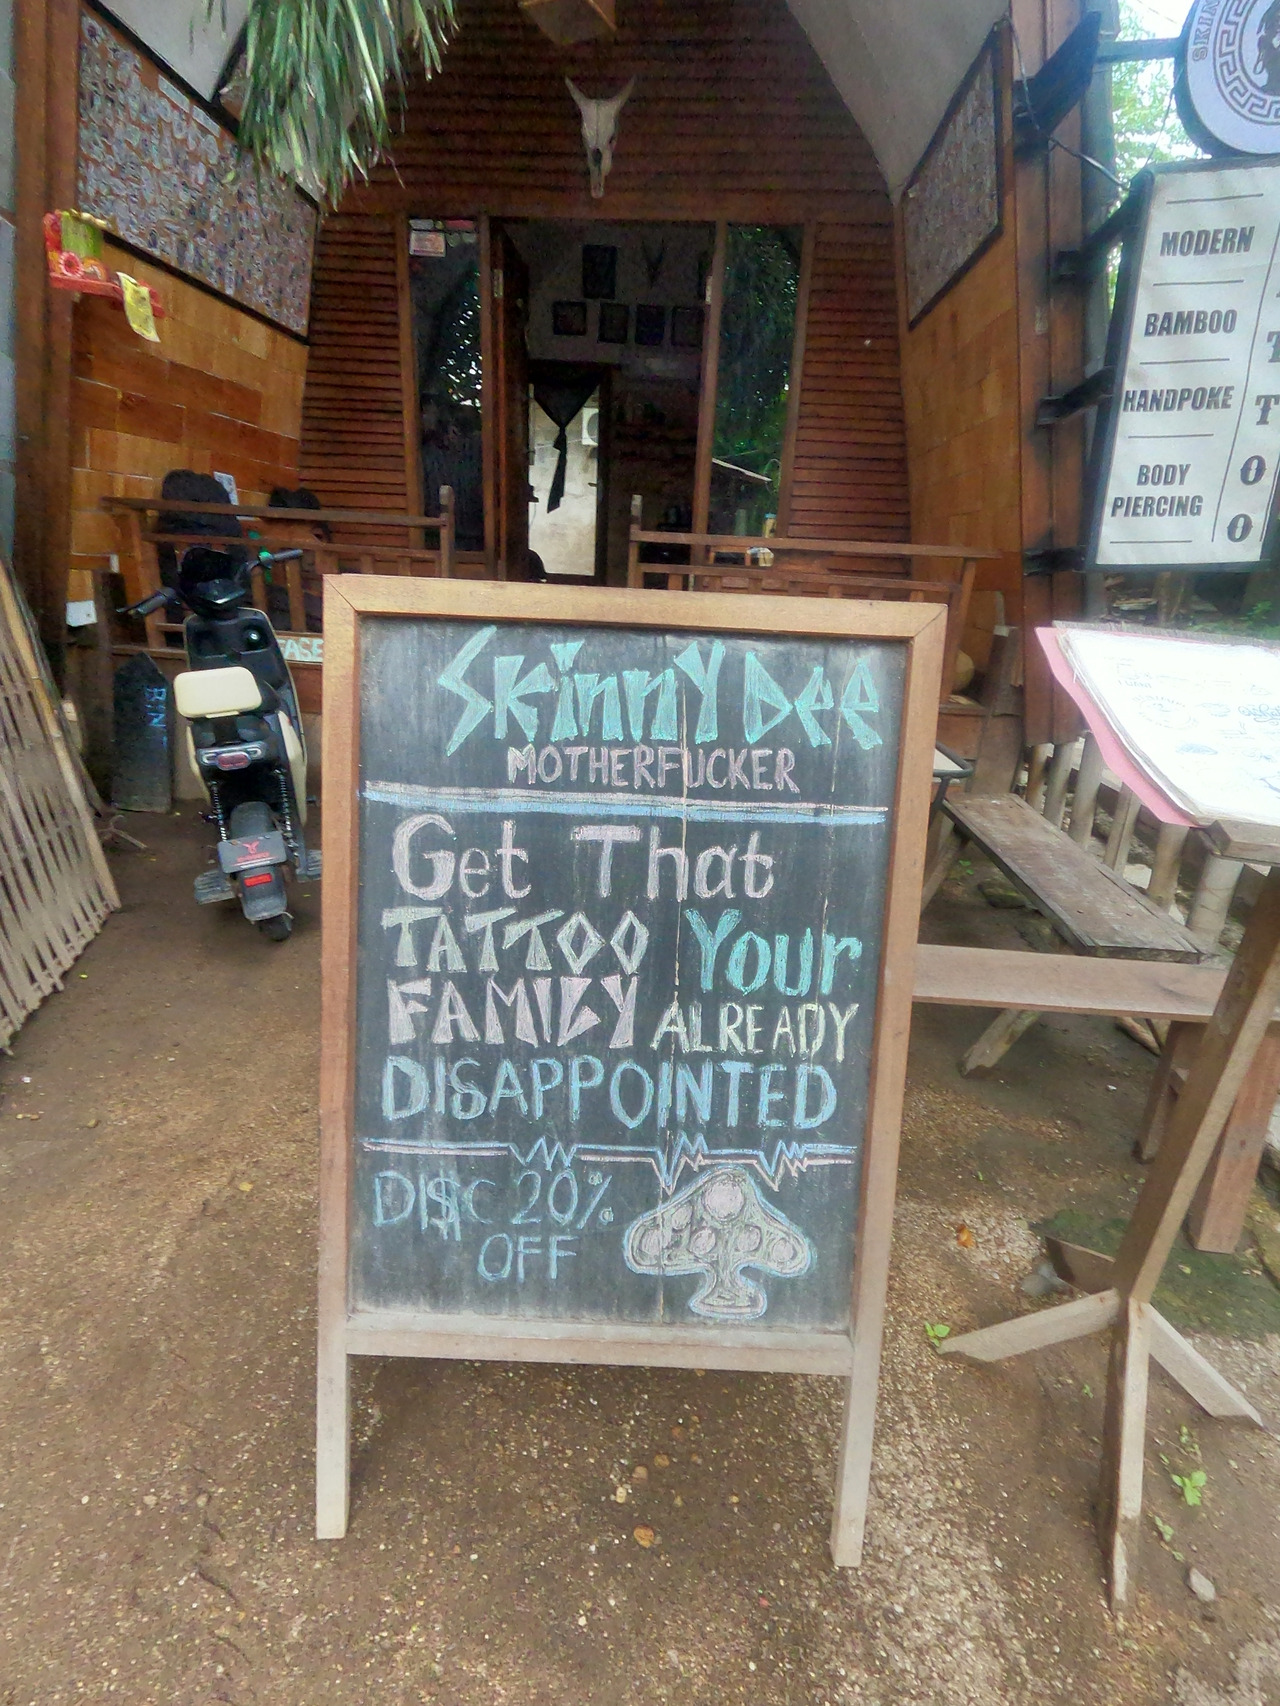 Skinny Dee
MOTHERFUCKER
Get That
TATTOO Your
FAMILY ALREADY
DISAPPOINTED
DI$C 20%
OFF
SKIN
MODERN
BAMBOO
HANDPOKE
BODY
PIERCING
T
T
O
O